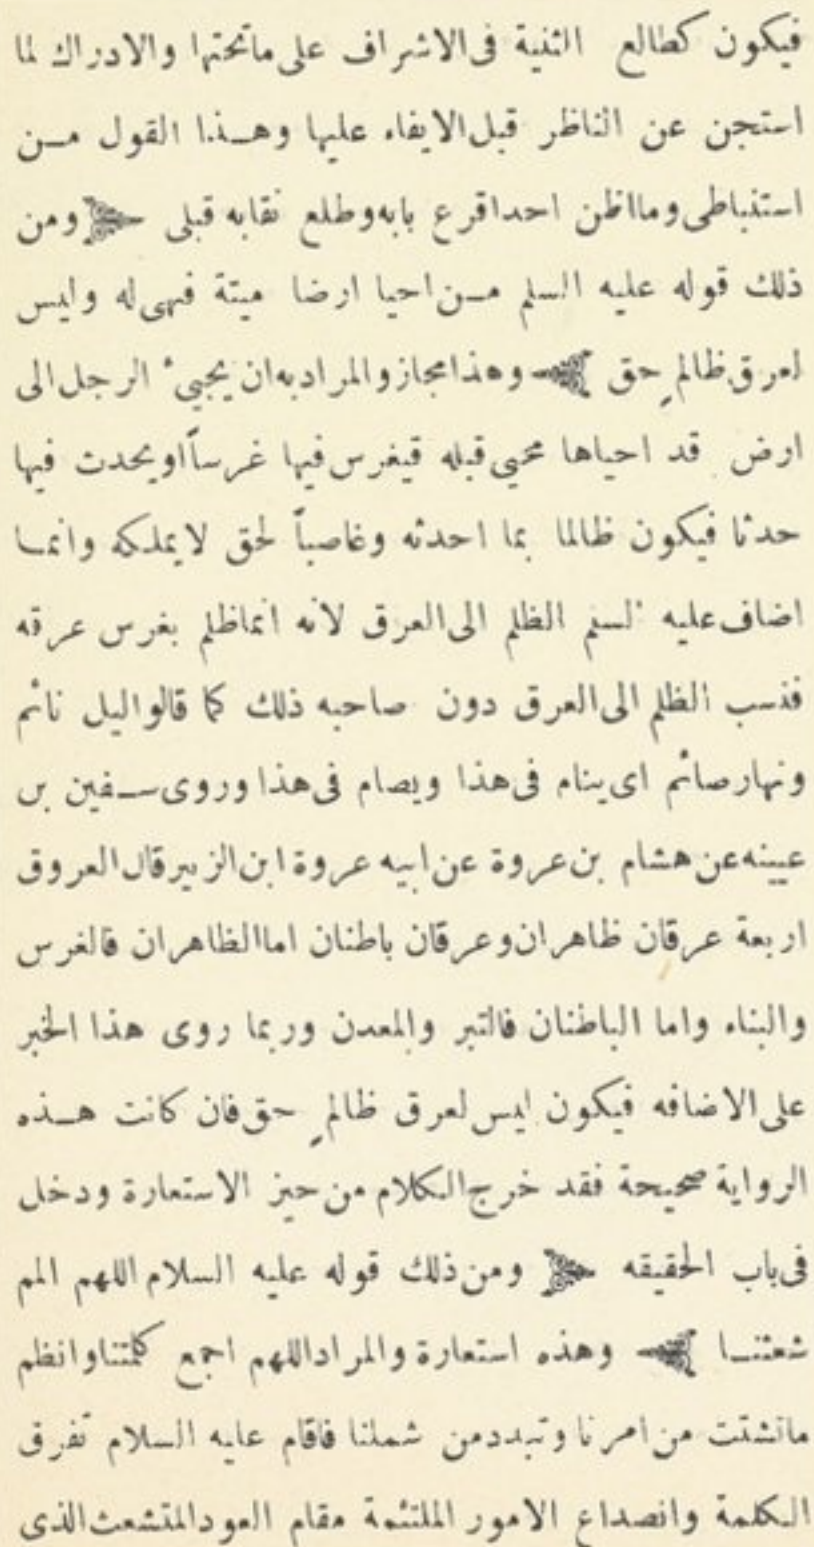 فيكون كطالع الثنية فى الاشراف على ماتحتها والادراك لما
استجن عن الناظر قبل الايفاء عليها وهـذا القول مـن
استنباطى ومااظن احداقرع بابه وطلع نقابه قبلى ومن
ذلك قوله عليه السلم مـن احيا ارضا ميتة فهى له وليس
لعرق ظالمٍ حق وهذا مجاز والمراد به ان يجيئ الرجل الى
ارض قد احياها محيى قبله فيغرس فيها غرساً او يحدث فيها
حدثا فيكون ظالما بما احدثه وغاصباً لحق لا يملكه وانما
اضاف عليه السلم الظلم الى العرق لانه انماظلم بغرس عرقه
فنسب الظلم الى العرق دون صاحبه ذلك كما قالو اليل نائم
ونهار صائم اى ينام فى هذا ويصام فى هذا وروى سـفين بن
عيينه عن هشام بن عروة عن ابيه عروة ابن الزبير قال العروق
اربعة عرقان ظاهران وعرقان باطنان اما الظاهران فالغرس
والبناء واما الباطنان فالتبر والمعدن وربما روى هذا الخبر
على الاضافه فيكون ليس لعرق ظالمٍ حق فان كانت هـذه
الرواية صحيحة فقد خرج الكلام من حيز الاستعارة ودخل
فى باب الحقيقه ومن ذلك قوله عليه السلام اللهم المم
شعثنـا وهذه استعارة والمراد اللهم اجمع كلمتنا وانظم
ماتشتت من امرنا وتبدد من شملنا فاقام عليه السلام تفرق
الكلمة وانصداع الامور الملتئمة مقام العود المتشعث الذى